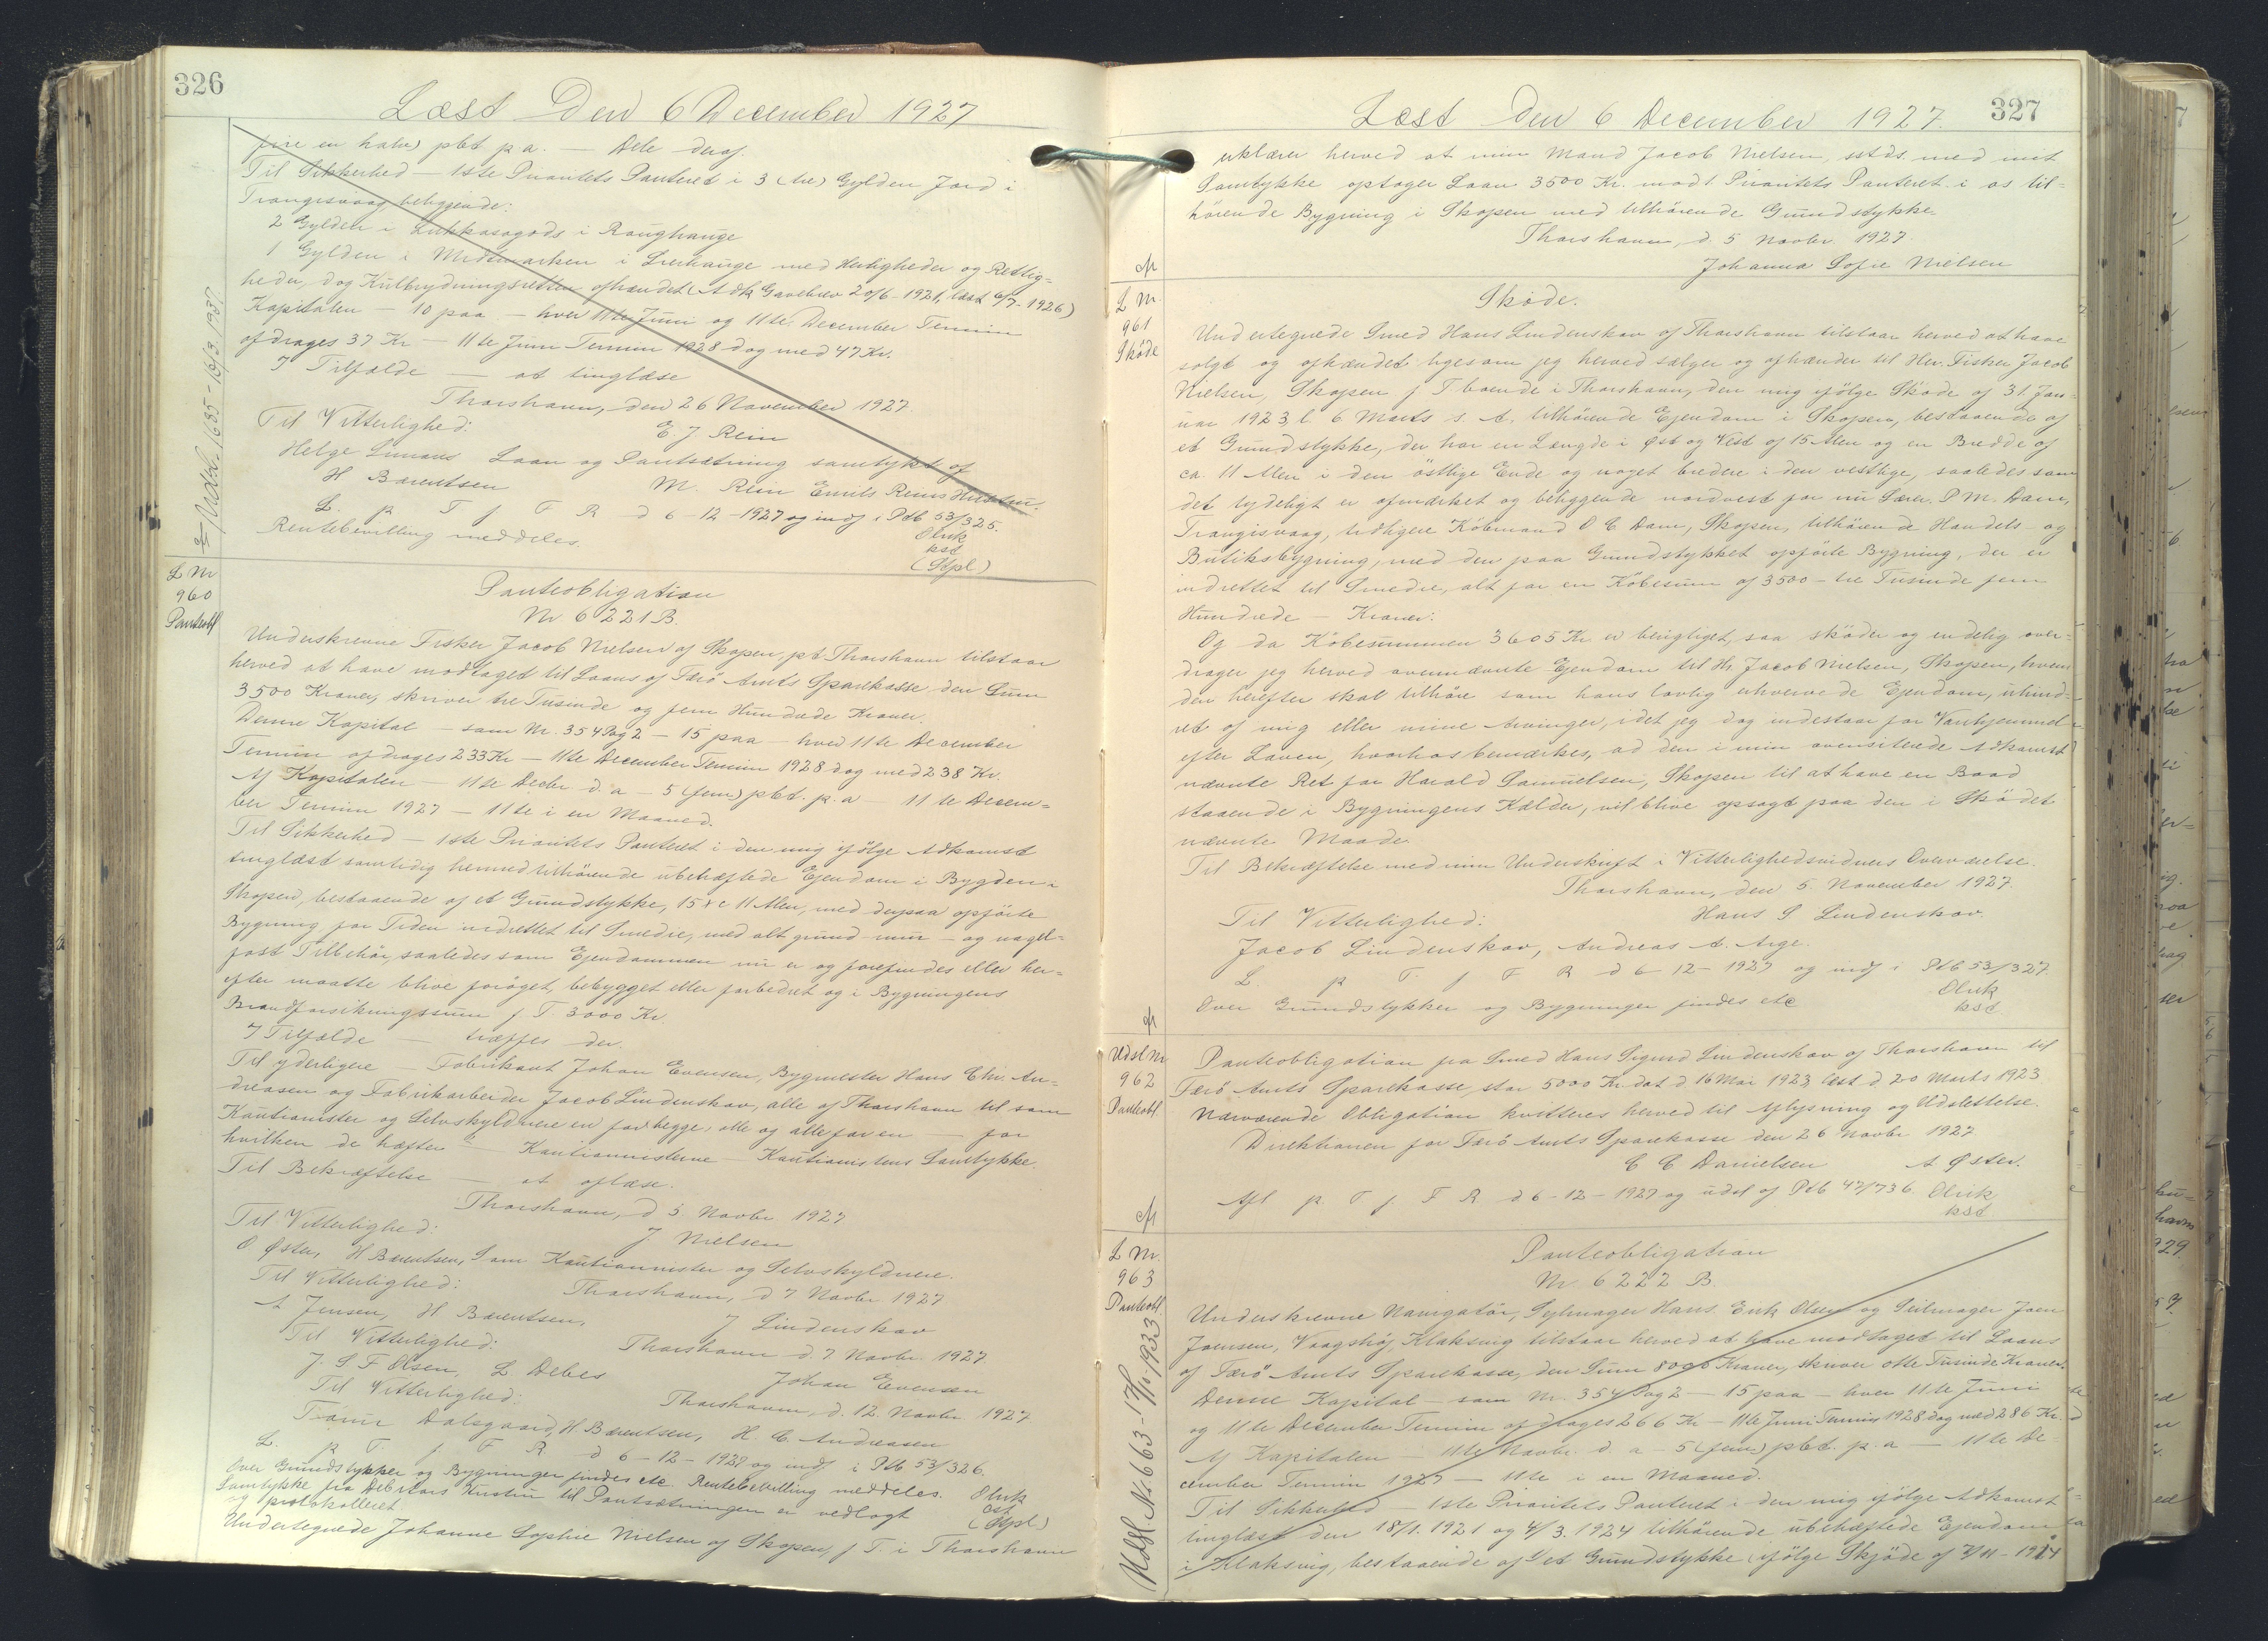 326
Læst Den 6 December 1927
fire en halv) pCt p a. — Dele deraf.
Til Sikkerhed — 1ste Prioritets Panteret i 3 (tre) Gylden Jord i
Trangisvaag beliggende:
2 Gylden i Lukkasogods i
1 Gylden i med Herligheder og Rettig-
heder, dog Kulbrydningsretten afhændet (Adk Gavebrev 20/6-1921, læst 6/7-1926)
Kapitalen — 10 paa — hver 11te Juni og 11te December Termin
afdrages 37 Kr — 11te Juni Termin 1928 dog med 47 Kr.
I Tilfælde — at tinglæse
Thorshavn, den 26 November 1927
Til Vitterlighed:
E. J Rein
Helge Laan og Pantsætning samtykt af
H Bærentsen M. Rein Emils Reins Hustru.
L. p T. f. F R d 6-12-1927 og indf i Ptb 53/325.
Rentebevilling meddeles.
Olrik
kst
(Stpl)
Udsl. 1635-16/3.1937
L Nr
960
Panteobl
Panteobligation
Nr 6221 B.
Underskrevne Fisker Jacob Nielsen af Skopen, pt Thorshavn tilstaar
herved at have modtaget til Laans af Færö Amts Sparekasse den Sum
3500 Kroner, skriver tre Tusinde og fem Hundrede Kroner.
Denne Kapital — som Nr. 354 Pag 2 — 15 paa — hver 11te December
Termin afdrages 233 Kr — 11te December Termin 1928 dog med 238 Kr.
Af Kapitalen — 11te Decbr d. a — 5 (fem) pCt. p. a — 11te Decem-
ber Termin 1927 — 11te i en Maaned.
Til Sikkerhed — 1ste Prioritets Panteret i den mig ifölge Adkomst
tinglæst samtidig hermed tilhörende ubehæftede Ejendom i Bygden i
Skopen, bestaaende af et Grundstykke, 15 x c 11 Alen, med derpaa opförte
Bygning for Tiden indrettet til Smedie, med alt grund- mur- og nagel-
fast Tilbehör, saaledes som Ejendommen nu er og forefindes eller her-
efter maatte blive foröget, bebygget eller forbedret og i Bygningens
Brandforsikringssum f T. 3000 Kr.
I Tilfælde — træffes der.
Til yderligere — Fabrikant Johan Evensen, Bygmester Hans Chr. An-
dreasen og Fabrikarbeider Jacob Lindenskov, alle af Thorshavn til som
Kautionister og Selvskyldnere en for begge, alle og alle for en — for
hvilken de hæfter — Kautionisterne — Kautionistens Samtykke.
Til Bekræftelse — at aflæse.
Thorshavn, d 5. Novbr 1927
Til Vitterlighed:
J Nielsen
O Øster, H Bærentsen, Som Kautionister og Selvskyldnere.
Til Vitterlighed: Thorshavn, d 7 Novbr 1927
A Jensen, H Bærentsen, J Lindenskov
Til Vitterlighed: Thorshavn d. 7 Novbr. 1927
J. S F Olsen, L Debes Johan Evensen
Til Vitterlighed: Thorshavn, d. 12. Novbr 1927
Dalsgaard, H Bærentsen, H. C. Andreasen
L. p T. f. F R. d 6-12-1927 og indf i Ptb 53/326.
Over Grundstykker og Bygninger findes etc. Rentebevilling meddeles. Olrik
Samtykke fra Debitors Hustru til Pantsætningen er vedlagt cst
og protokolleret. (Stpl)
Undertegnede Johanne Sophie Nielsen af Skopen, f T. i Thorshavn
327
Læst Den 6 December 1927.
erklærer herved at min Mand Jacob Nielsen, sstds. med mit
Samtykke optager Laan 3500 Kr. mod 1. Prioritets Panteret i os til-
hörende Bygning i Skopen med tilhörende Grundstykke.
Thorshavn, d. 5 Novbr. 1927.
Johanna Sofie Nielsen
cfr
L Nr.
961
Sköde
Sköde.
Undertegnede Smed Hans Lindenskov af Thorshavn tilstaar herved at have
solgt og afhændet ligesom jeg herved sælger og afhænder til Hr. Fisker Jacob
Nielsen, Skopen f T boende i Thorshavn, den mig ifölge Sköde af 31. Jan-
uar 1923, l. 6 Marts s. A. tilhörende Ejendom i Skopen, bestaaende af
et Grundstykke, der har en Længde i Øst og Vest af 15 Alen og en Bredde af
ca. 11 Alen i den östlige Ende og noget bredere i den vestlige, saaledes som
det tydeligt er afmærket og beliggende nordvest for nu Lærer P M. Dam,
Trangisvaag, tidligere Köbmand O C Dam, Skopen, tilhörende Handels- og
Butiksbygning, med den paa Grundstykket opförte Bygning, der er
indrettet til Smedie, alt for en Köbesum af 3500 — tre Tusinde fem
Hundrede — Kroner.
Og da Köbesummen 3605 Kr er berigtiget, saa sköder og endelig over-
drager jeg herved ovennævnte Ejendom til Hr Jacob Nielsen, Skopen, hvem
den herefter skal tilhöre som hans lovlig erhvervede Ejendom, uhind-
ret af mig eller mine Arvinger, idet jeg dog indestaar for Vanhjemmel
efter Loven, hvorhos bemærkes, at den i min ovenciterede Adkomst
nævnte Ret for Harald Samuelsen, Skopen til at have en Baad
staaende i Bygningens Kælder, vil blive opsagt paa den i Sködet
nævnte Maade.
Til Bekræftelse med min Underskrift i Vitterlighedsvidners Overværelse.
Thorshavn, den 5. November 1927.
Til Vitterlighed: Hans S. Lindenskov.
Jacob Lindenskov, Andreas A. Arge.
L. p T. f F R d 6-12-1927 og indf i Ptb 53/327.
Olrik
kst
Over Grundstykker og Bygninger findes etc
cfr
Udsl Nr
962
Panteobl.
Panteobligation fra Smed Hans Sigurd Lindenskov af Thorshavn til
Færö Amts Sparekasse, stor 5000 Kr dat d 16 Mai 1923, læst d 20 Marts 1923
Nærværende Obligation kvitteres herved til Aflysning og Udslettelse.
Direktionen for Færö Amts Sparekasse den 26 Novbr 1927
C C Danielsen A Øster.
Afl p T f. F R d 6-12-1927 og udsl af Ptb 47/736. Olrik
kst
cfr
L Nr.
963
Panteobl.
Udsl. Nr 663-17/10 1933
Panteobligation
Nr. 6222 B.
Underskrevne Navigatör, Sejlmager Hans Erik Olsen og Seilmager Joen
Joensen, Vaagshöj, Klaksvig tilstaar herved at have modtaget til Laans
af Færö Amts Sparekasse, den Sum 8000 Kroner, skriver otte Tusinde Kroner.
Denne Kapital — som Nr. 354 Pag 2 — 15 paa — hver 11te Juni
og 11te December Termin afdrages 266 Kr — 11te Juni Termin 1928 dog med 286 Kr.
Af Kapitalen — 11te Novbr. d. a — 5 (fem) pCt. p. a — 11te De-
cember Termin 1927 — 11te i en Maaned.
Til Sikkerhed — 1ste Prioritets Panteret i den mig ifölge Adkomst
tinglæst den 18/1. 1921 og 4/3. 1924 tilhörende ubehæftede Ejendom
i Klaksvig, bestaaende af 1 et Grundstykke (ifölge Skjöde af